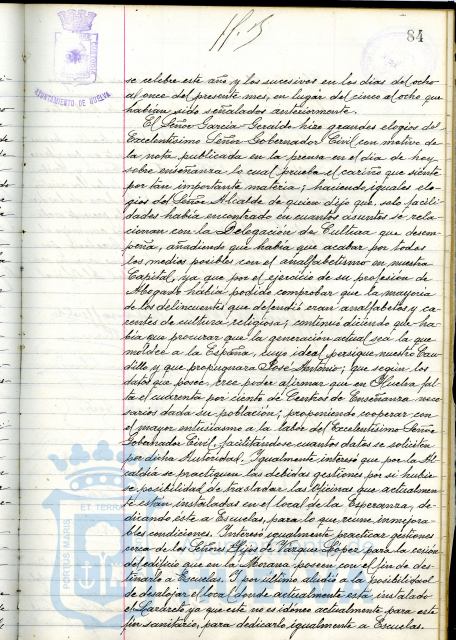 84
AYUNTAMIENTO DE HUELVA
se celebre este año y los sucesivos en los días del ocho
al once del presente mes, en lugar del cinco al ocho que
habían sido señalados anteriormente.
El Señor García Geraldo hizo grandes elogios del
Excelentísimo Señor Gobernador Civil con motivo de
la nota publicada en la prensa en el día de hoy
sobre enseñanza lo cual prueba el cariño que siente
por tan importante materia; haciendo iguales elo-
gios del Señor Alcalde de quien dijo que, solo facili-
dades había encontrado en cuantos asuntos se rela-
cionan con la Delegación de Cultura que desem-
peña, añadiendo que había que acabar por todos
los medios posibles con el analfabetismo en nuestra
Capital, ya que por el ejercicio de su profesión de
Abogado había podido comprobar que la mayoría
de los delincuentes que defendió eran analfabetos y ca-
rentes de cultura religiosa; continuó diciendo que ha-
bía que procurar que la generación actual sea la que
moldeé a la España, cuyo ideal persigue nuestro Cau-
dillo y que propugnara José Antonio; que según los
datos que posee, cree poder afirmar que en Huelva fal-
ta el cuarenta por ciento de Centros de Enseñanza nece-
sarios dada su población; proponiendo cooperar con
el mayor entusiasmo a la labor del Excelentísimo Señor
Gobernador Civil, facilitándose cuantos datos se soliciten
por dicha Autoridad. Igualmente interesó que por la Al-
caldía se practiquen las debidas gestiones por si hubie-
se posibilidad de trasladar las Oficinas que actualmen-
te están instaladas en el local de la Esperanza, de-
dicando éste a Escuelas, para lo que reune inmejora-
bles condiciones. Interesó igualmente practicar gestiones
cerca de los Señores Hijos de Vazquez López para la cesión
del edificio que en la Morana poseen con el fin de des-
tinarlo a Escuelas. Y por último aludió a la posibilidad
de desalojar el local donde actualmente está instalado
el Lazareto ya que este no es idóneo actualmente para este
fin sanitario, para dedicarlo igualmente a Escuelas.
PORTUS MARIS
ET TERRA